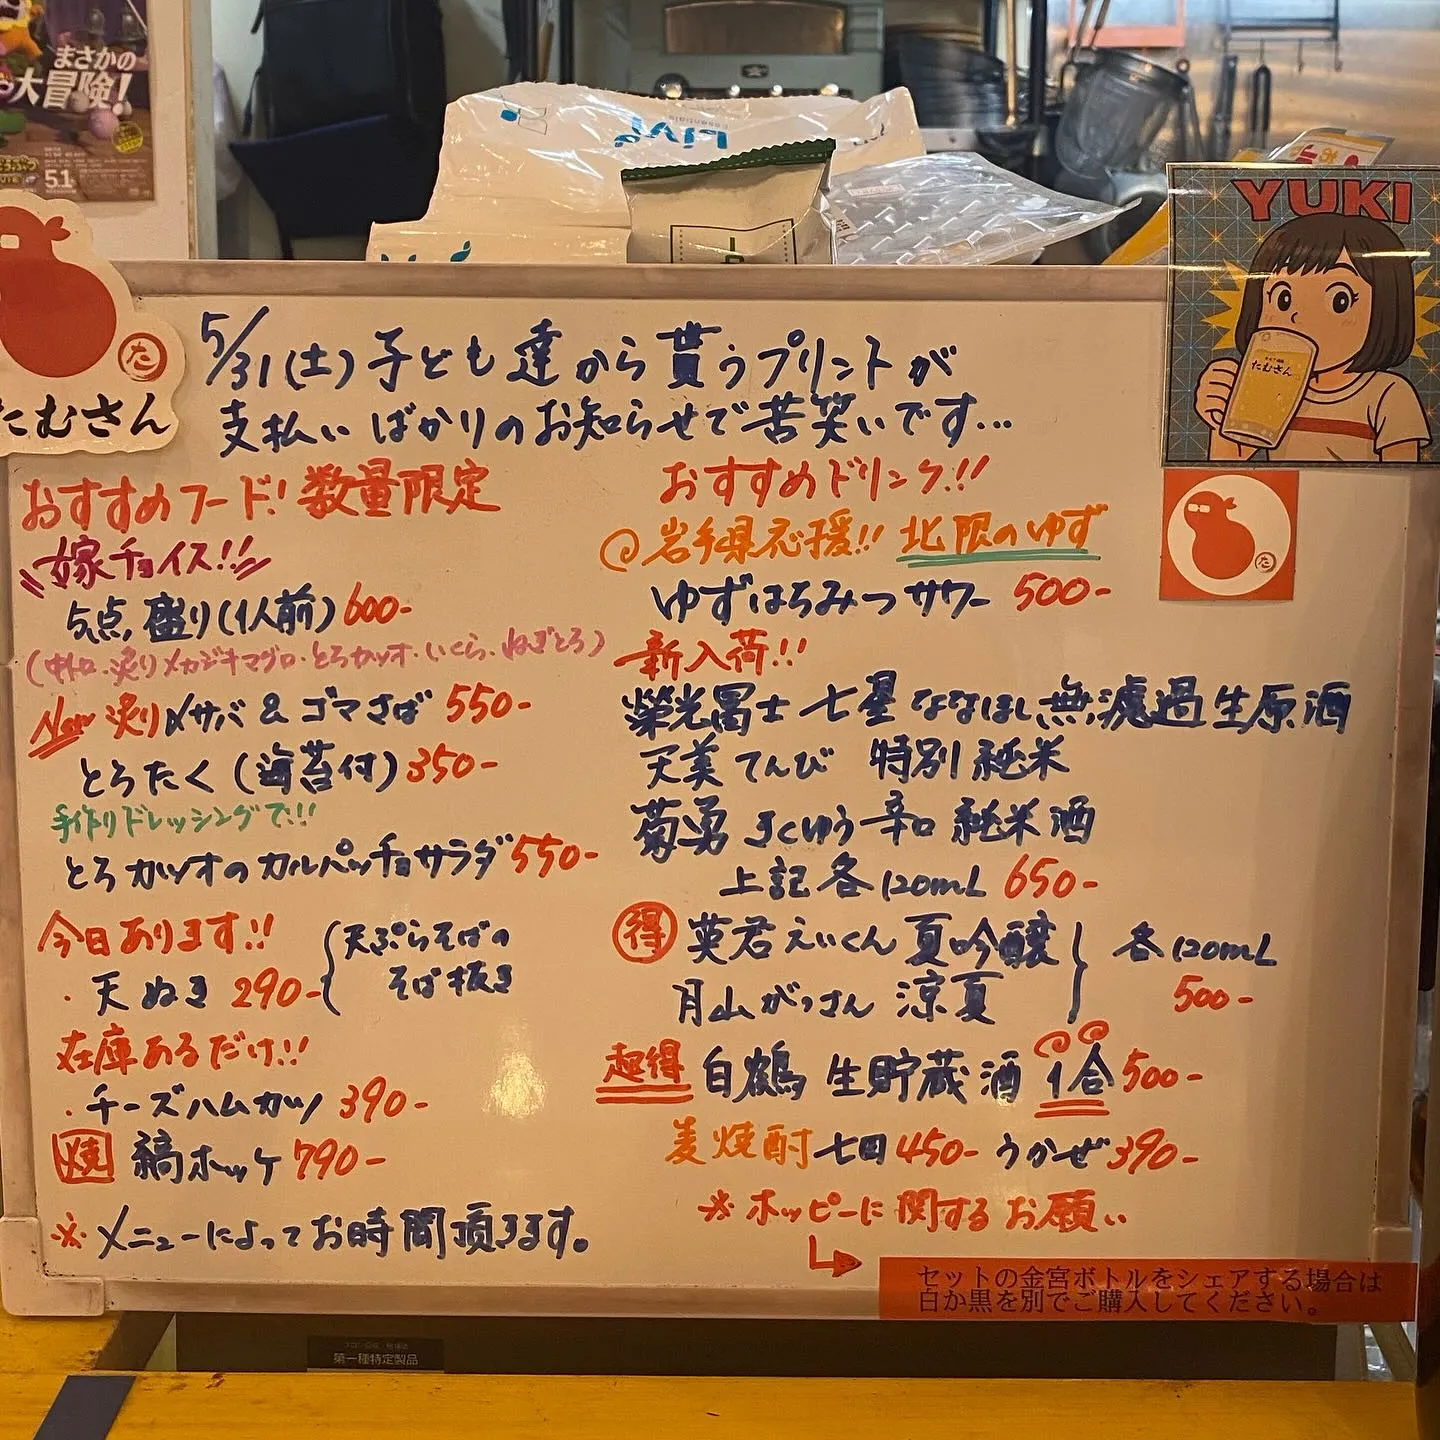 まさかの
大冒険!
5.1
YUKI
たむさん
た
たむさん
5/31(土)子ども達から貰うプリントが
支払いばかりのお知らせで苦笑いです...
おすすめフード!数量限定
嫁チョイス!!
5点盛り(1人前)600-
(中トロ・炙りメカジキマグロ・とろカツオ・いくら・ねぎとろ)
New 炙り〆サバ&ゴマさば 550-
とろたく(海苔付)350-
手作りドレッシングで!!
とろカツオのカルパッチョサラダ550-
今日あります!!
・天ぬき 290-
天ぷらそばの
そば抜き
在庫あるだけ!!
・チーズハムカツ 390-
焼 縞ホッケ 790-
※メニューによってお時間頂きます。
おすすめドリンク!!
岩手県応援!! 北限のゆず
ゆずはちみつサワー 500-
新入荷!!
榮光冨士 七星 ななほし 無濾過生原酒
天美 てんび 特別純米
菊勇 きくゆう 辛口 純米酒
上記各120mL 650-
得 英君 えいくん 夏吟醸
月山 がっさん 涼夏
各120mL
500-
超得 白鶴 生貯蔵酒 1合 500-
麦焼酎 七田 450- うかぜ 390-
※ホッピーに関するお願い
セットの金宮ボトルをシェアする場合は
白か黒を別でご購入してください。
第一種特定製品